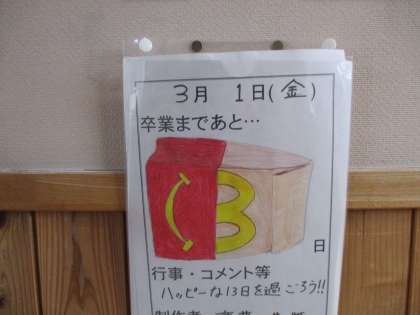 3月 1日(金)
卒業まであと…
13
日
行事・コメント等
ハッピーな13日を過ごろう!!
製作者